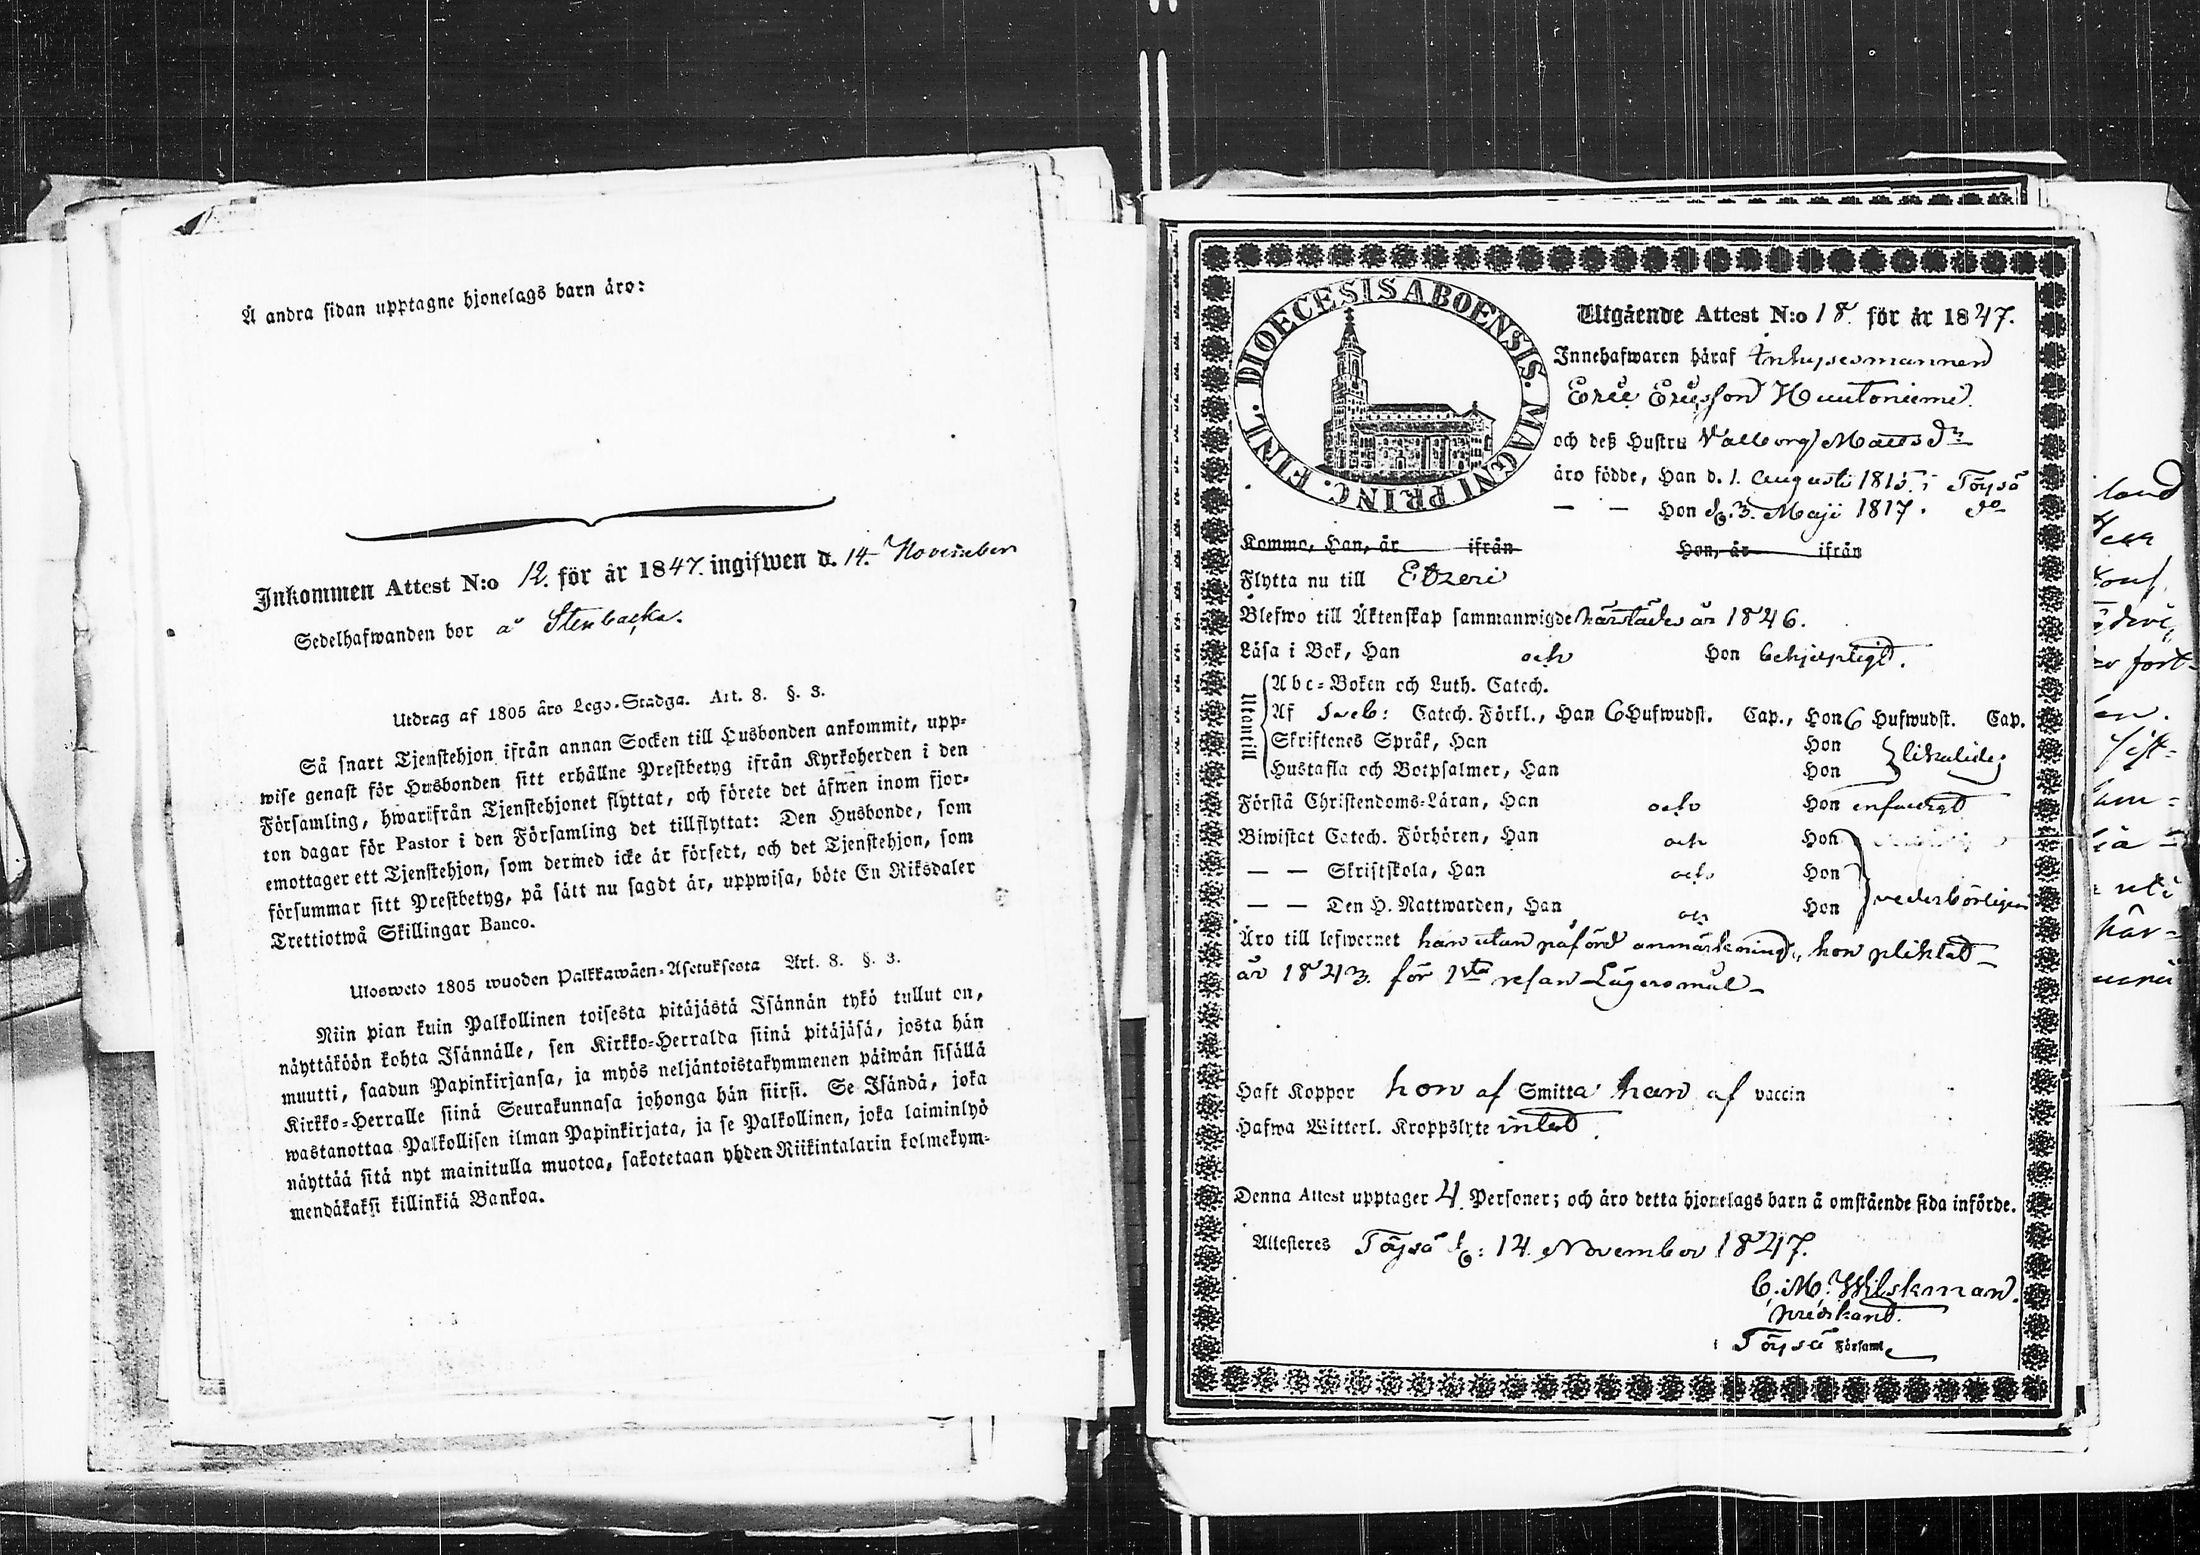 Å andra sidan upptagne hjonelags barn äro:
Inkommen Attest N:o 12. för år 1847. ingifwen d. 14. November
Sedelhafwanden bor å Stenbacka.
Utdrag af 1805 års Lego-Stadga. Art. 8. §. 3.
Så snart Tjenstehjon ifrån annan Socken till Husbonden ankommit, upp-
wise genast för Husbonden sitt erhållne Prestbetyg ifrån Kyrkoherden i den
Församling, hwarifrån Tjenstehjonet flyttat, och förete det äfwen inom fjor-
ton dagar för Pastor i den Församling det tillflyttat: Den Husbonde, som
emottager ett Tjenstehjon, som dermed icke är försedt, och det Tjenstehjon, som
försummar sitt Prestbetyg, på sätt nu sagdt är, uppwisa, böte En Riksdaler
Trettiotwå Skillingar Banco.
Ulosweto 1805 wuoden Palkkawäen-Asetuksesta Art. 8. §. 3.
Niin pian kuin Palkollinen toisesta pitäjästä Isännän tykö tullut on,
näyttäköön kohta Isännälle, sen Kirkko-Herralda siinä pitäjäsä, josta hän
muutti, saadun Papinkirjansa, ja myös neljäntoistakymmenen päiwän sisällä
Kirkko-Herralle siinä Seurakunnasa johonga hän siirsi. Se Isändä, joka
wastanottaa Palkollisen ilman Papinkirjata, ja se Palkollinen, joka laiminlyö
näyttää sitä nyt mainitulla muotoa, sakotetaan yhden Riikintalarin kolmekym-
mendäkaksi killinkiä Bankoa.
DIOECESIS ABOENSIS. MAGNI PRINC. FINL.
Utgående Attest N:o 18. för år 1847.
Innehafwaren häraf Inhysesmannen
Eric Ericsson Huutoniemi.
och deß Hustru Valborg Matts dr
äro födde, Han d. 1. Augusti 1815. i Töysä
— — Hon d. 3. Maji 1817. do
Kommo, Han, år ifrån Hon, år ifrån
Flytta nu till Etzeri
Blefwo till Äktenskap sammanwigde härstädes år 1846.
Läsa i Bok, Han och Hon behjelpligt.
Utantill
Abc-Boken och Luth. Catech.
Af Sveb: Catech. Förkl., Han 6 Hufwudst. Cap., Hon 6 Hufwudst. Cap.
Skriftenes Språk, Han Hon
Hustafla och Botpsalmer, Han Hon likaledes
Förstå Christendoms-Läran, Han och Hon enfaldigt
Biwistat Catech. Förhören, Han och Hon
— — Skriftskola, Han och Hon
— — Den H. Nattwarden, Han och Hon vederbörligen
Äro till lefwernet han utan påförd anmärkning, hon pliktat
år 1843. för 1sta resan Lägersmål
Haft Koppor hon af Smitta han af vaccin
Hafwa Witterl. Kroppslyte intet.
Denna Attest upptager 4. Personer; och äro detta hjonelags barn å omstående sida införde.
Attesteres Töysä d: 14. November 1847.
C. M. Wilskman.
predikant.
i Töysä Församl.